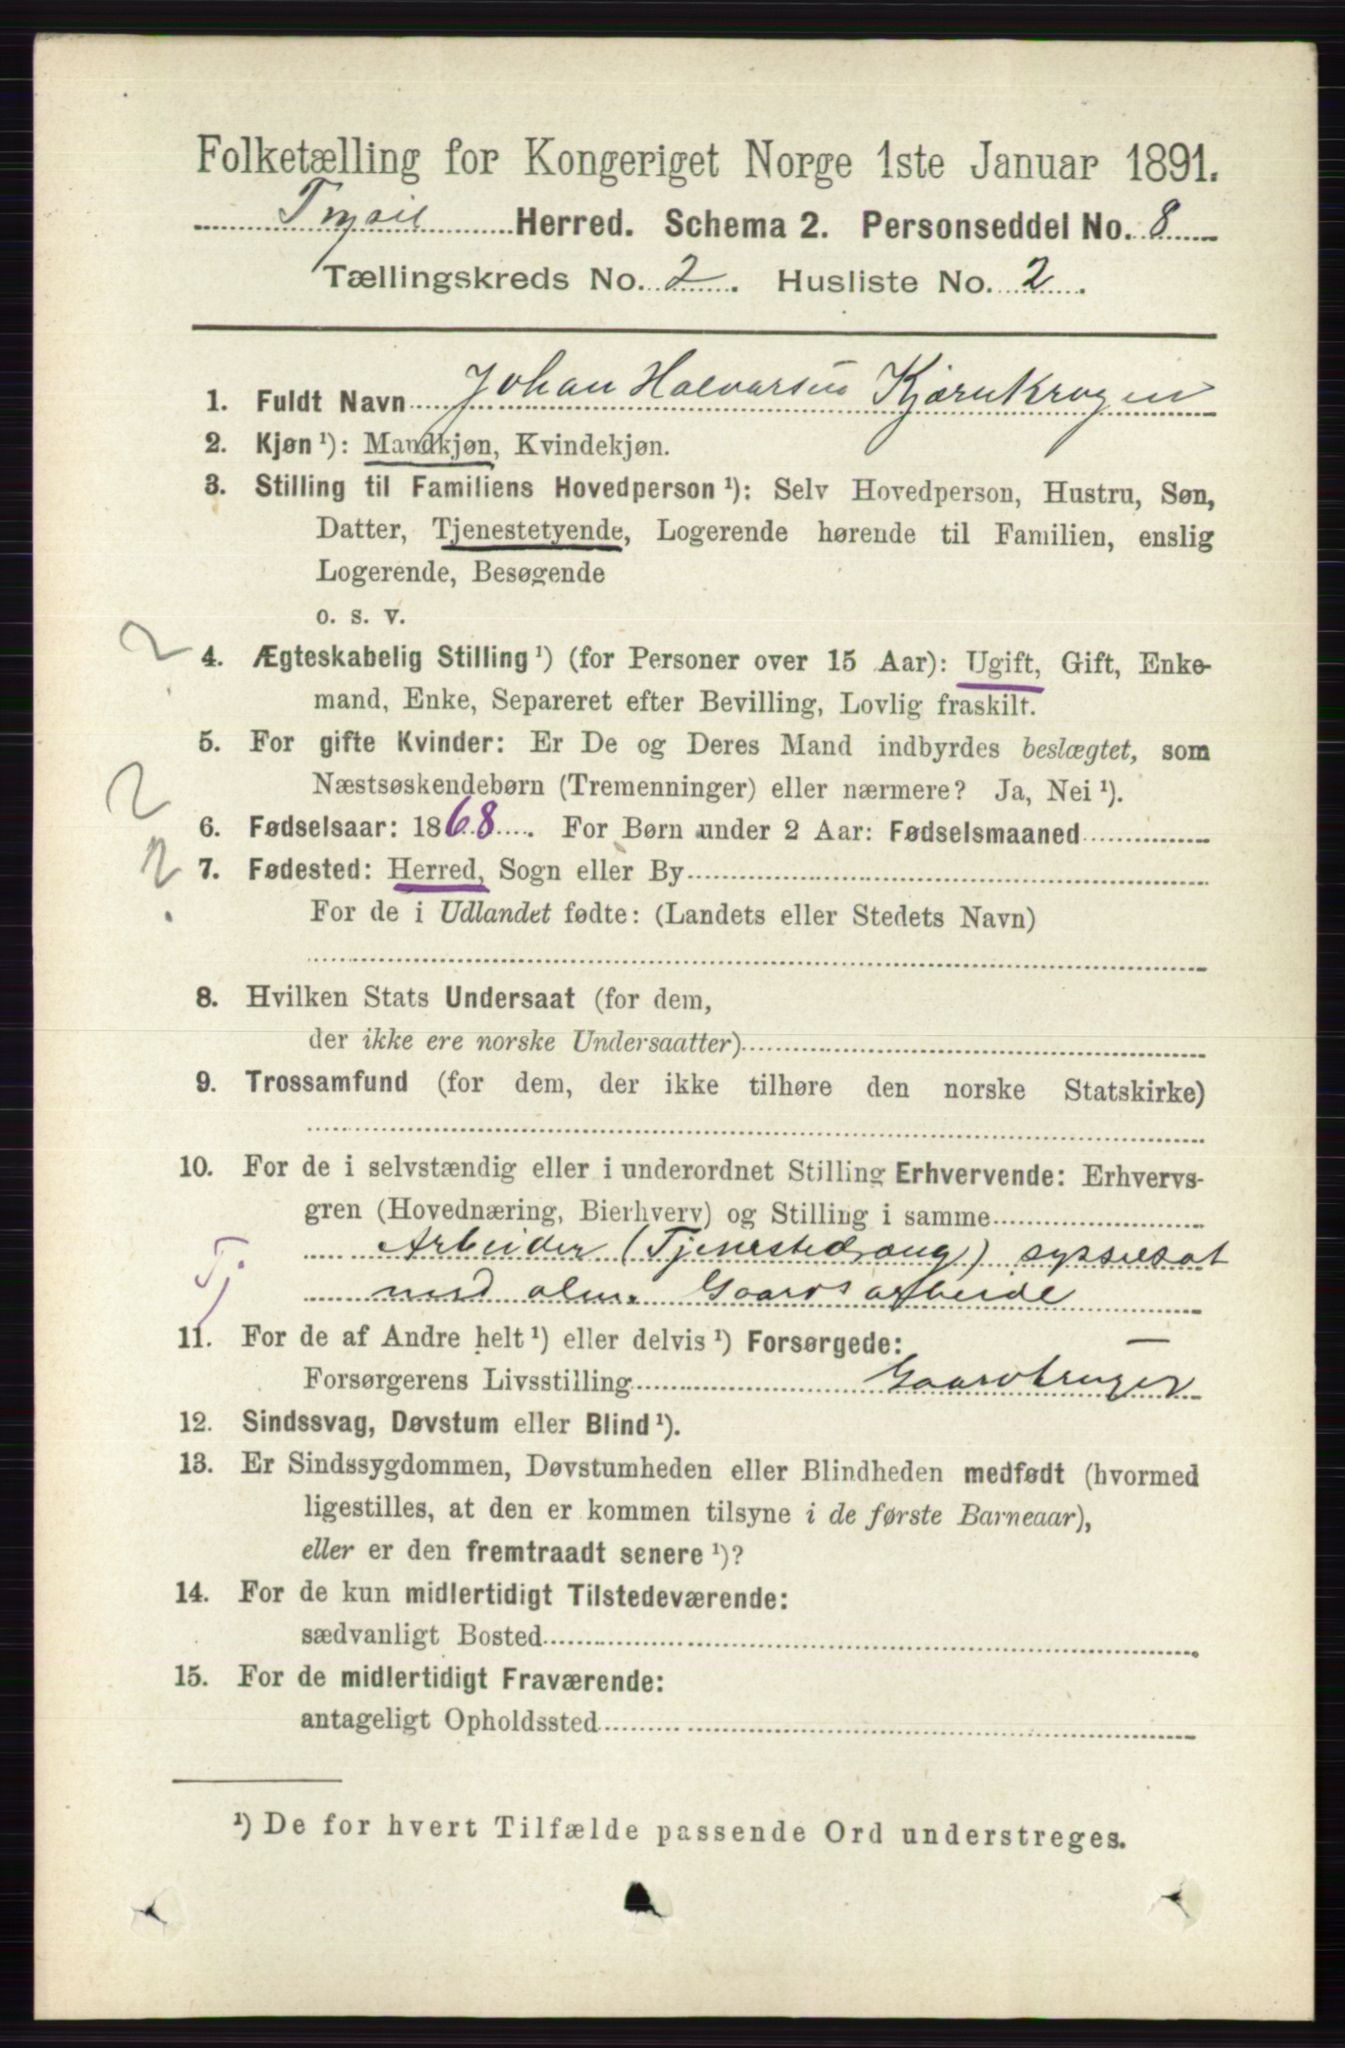 Folketælling for Kongeriget Norge 1ste Januar 1891.
Trysil Herred. Schema 2. Personseddel No. 8
Tællingskreds No. 2. Husliste No. 2.
1. Fuldt Navn Johan Halvorsen Kjærnkrogen
2. Kjøn ¹): Mandkjøn, Kvindekjøn.
3. Stilling til Familiens Hovedperson ¹): Selv Hovedperson, Hustru, Søn,
Datter, Tjenestetyende, Logerende hørende til Familien, enslig
Logerende, Besøgende
o. s. v.
2
4. Ægteskabelig Stilling ¹) (for Personer over 15 Aar): Ugift, Gift, Enke-
mand, Enke, Separeret efter Bevilling, Lovlig fraskilt.
5. For gifte Kvinder: Er De og Deres Mand indbyrdes beslægtet, som
Næstsøskendebørn (Tremenninger) eller nærmere? Ja, Nei ¹).
2
6. Fødselsaar: 1868. For Børn under 2 Aar: Fødselsmaaned
?
7. Fødested: Herred, Sogn eller By
For de i Udlandet fødte: (Landets eller Stedets Navn)
8. Hvilken Stats Undersaat (for dem,
der ikke ere norske Undersaatter)
9. Trossamfund (for dem, der ikke tilhøre den norske Statskirke)
10. For de i selvstændig eller i underordnet Stilling Erhvervende: Erhvervs-
gren (Hovednæring, Bierhverv) og Stilling i samme
Arbeider (Tjenestedrang) sysselsat
Tj.
med alm. Gaardsarbeide
11. For de af Andre helt ¹) eller delvis ¹) Forsørgede:
Forsørgerens Livsstilling Gaardbruger
12. Sindssvag, Døvstum eller Blind ¹).
13. Er Sindssygdommen, Døvstumheden eller Blindheden medfødt (hvormed
ligestilles, at den er kommen tilsyne i de første Barneaar),
eller er den fremtraadt senere ¹)?
14. For de kun midlertidigt Tilstedeværende:
sædvanligt Bosted
15. For de midlertidigt Fraværende:
antageligt Opholdssted
¹) De for hvert Tilfælde passende Ord understreges.